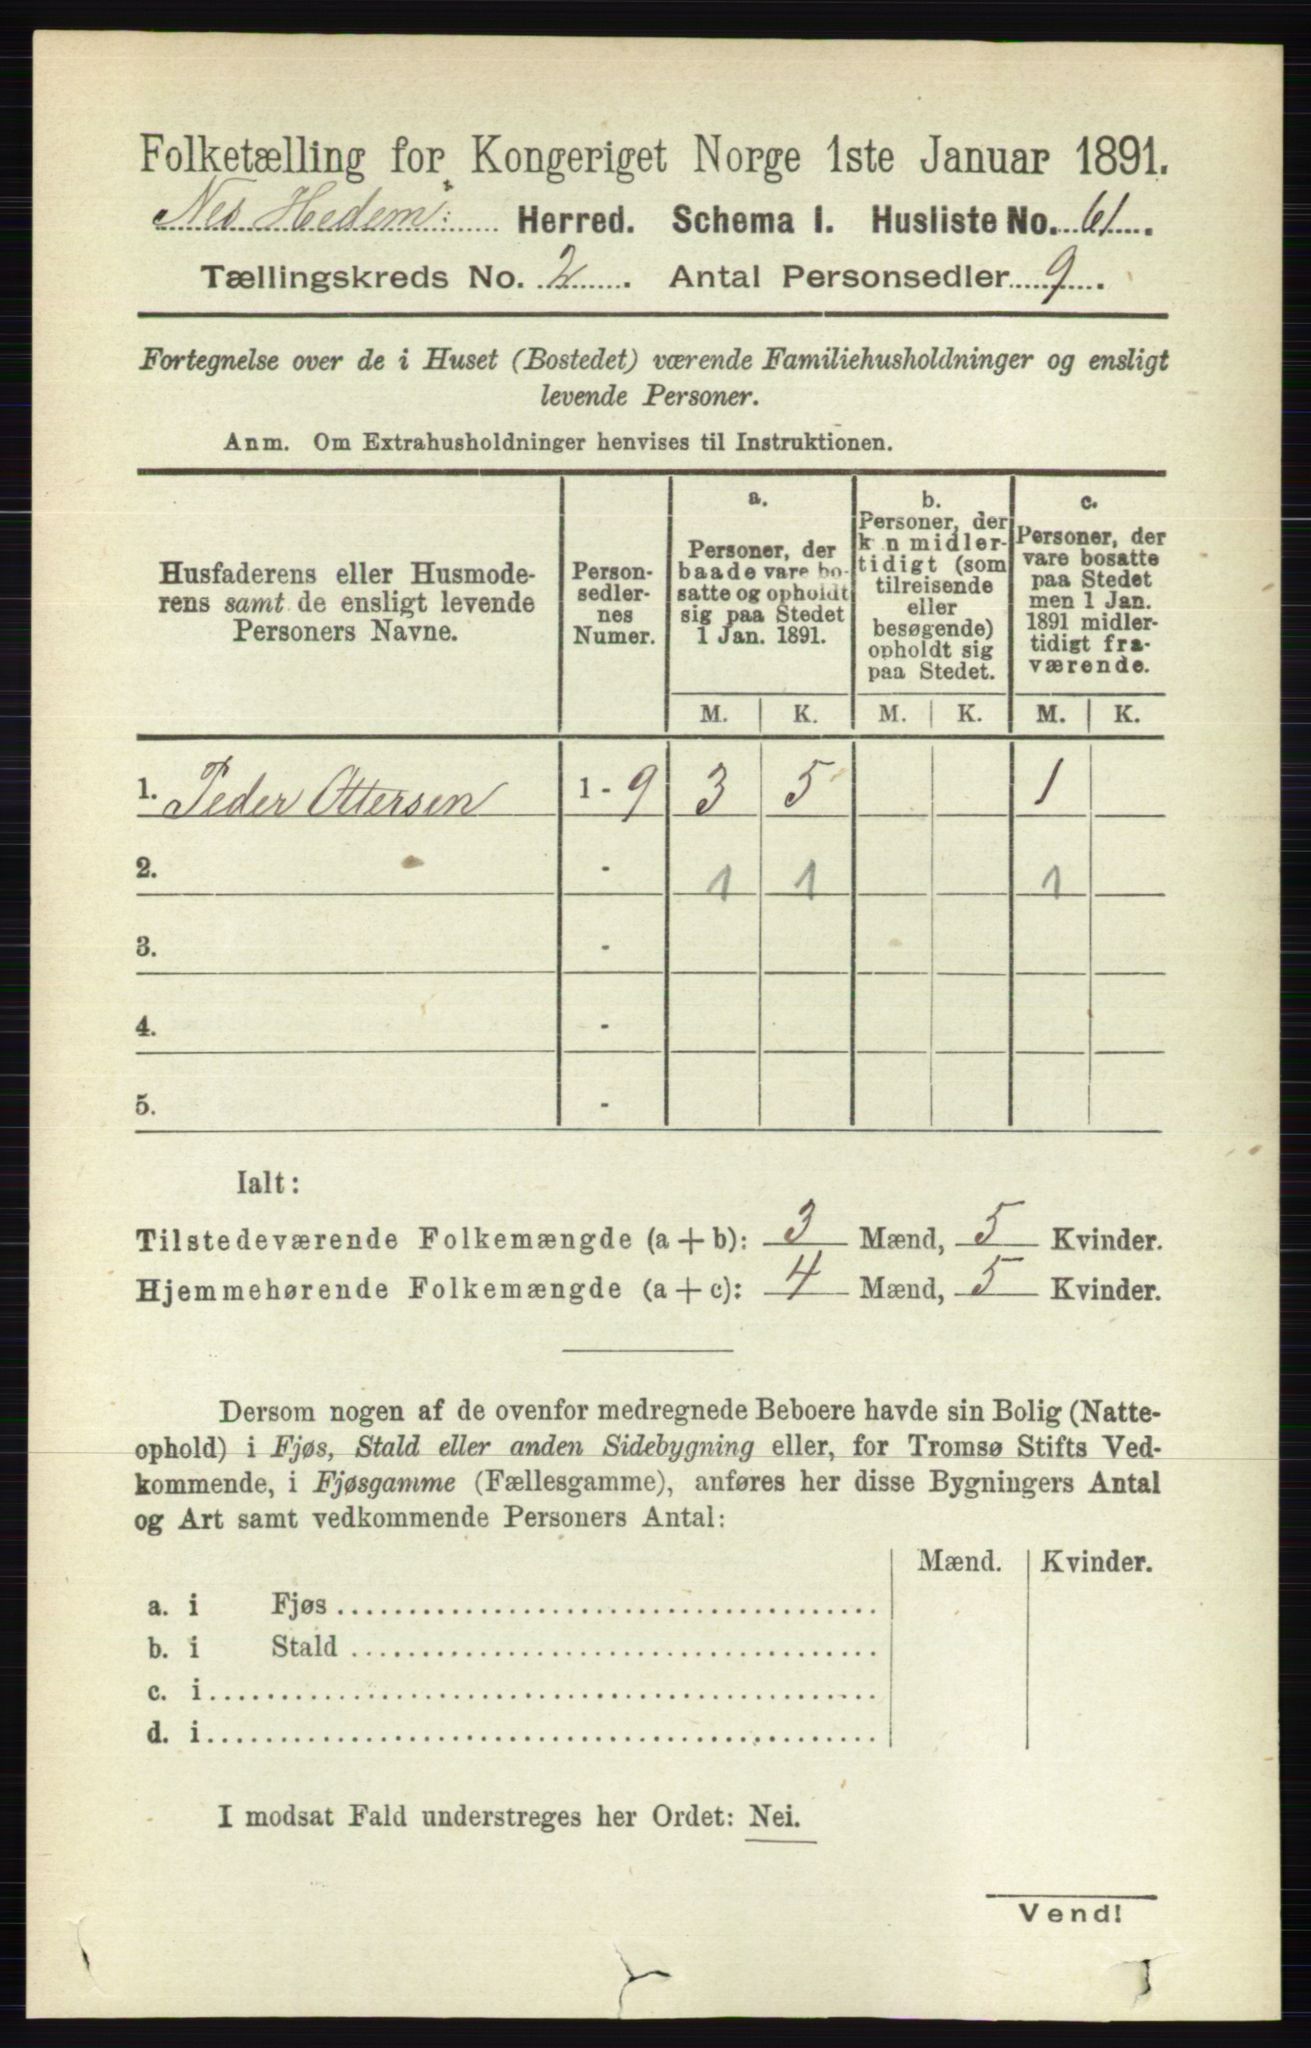 Folketælling for Kongeriget Norge 1ste Januar 1891.
Nes Hedem: Herred. Schema I. Husliste No. 61.
Tællingskreds No. 2. Antal Personsedler 9.
Fortegnelse over de i Huset (Bostedet) værende Familiehusholdninger og ensligt
levende Personer.
Anm. Om Extrahusholdninger henvises til Instruktionen.
Husfaderens eller Husmode-
rens samt de ensligt levende
Personers Navne.
Person-
sedler-
nes
Numer.
a.
Personer, der
baade vare bo-
satte og opholdt
sig paa Stedet
1 Jan. 1891.
b.
Personer, der
k n midler-
tidigt (som
tilreisende
eller
besøgende)
opholdt sig
paa Stedet.
c.
Personer, der
vare bosatte
paa Stedet
men 1 Jan.
1891 midler-
tidigt fra-
værende.
M. K. M. K. M. K.
1. Peder Ottersen 1 - 9 3 5 1
2. - 1 1 1
3. -
4. -
5. -
Ialt:
Tilstedeværende Folkemængde (a + b): 3 Mænd, 5 Kvinder.
Hjemmehørende Folkemængde (a + c): 4 Mænd, 5 Kvinder.
Dersom nogen af de ovenfor medregnede Beboere havde sin Bolig (Natte-
ophold) i Fjøs, Stald eller anden Sidebygning eller, for Tromsø Stifts Ved-
kommende, i Fjøsgamme (Fællesgamme), anføres her disse Bygningers Antal
og Art samt vedkommende Personers Antal:
Mænd. Kvinder.
a. i Fjøs
b. i Stald
c. i
d. i
I modsat Fald understreges her Ordet: Nei.
Vend!